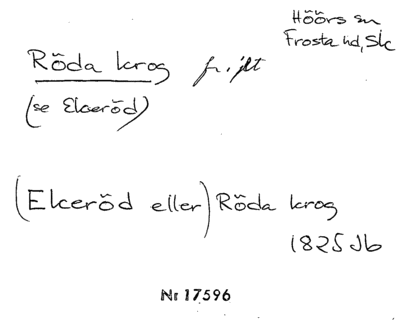 Höörs sn
Frosta hd, Sk
Röda krog fr. jlt
(se Ekeröd)
(Ekeröd eller) Röda krog
1825 Jb
Nr 17596